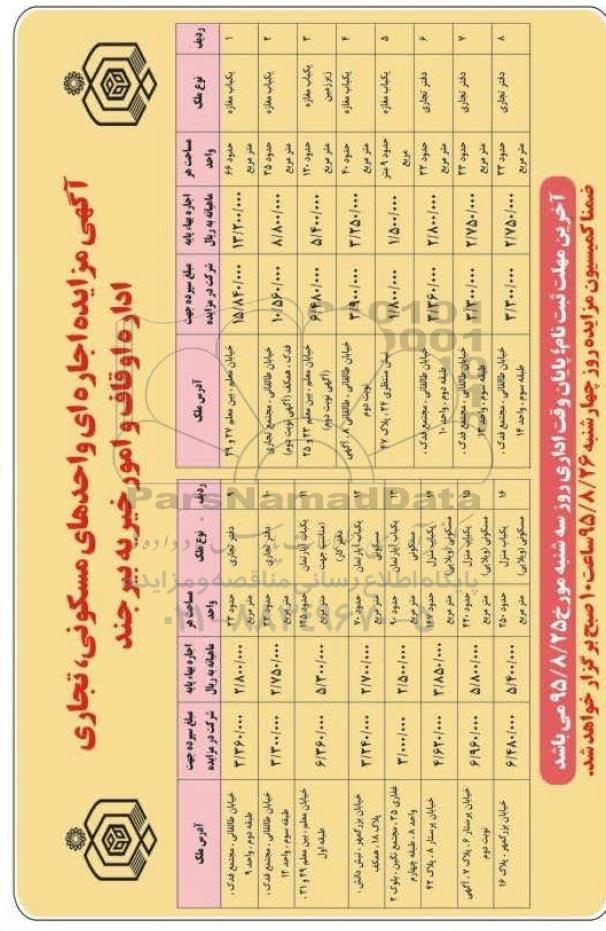 آگهی مزایده اجاره ای واحدهای مسکونی، تجاری
اداره اوقاف و امور خیریه بیرجند
ردیف نوع ملک مساحت هر واحد اجاره بهاء پایه ماهیانه به ریال مبلغ سپرده جهت شرکت در مزایده آدرس ملک
۱ یکباب مغازه حدود ۶۶ متر مربع ۱۳/۲۰۰/۰۰۰ ۱۵/۸۴۰/۰۰۰ خیابان معلم، بین معلم ۲۷ و ۲۹
۲ یکباب مغازه حدود ۲۵ متر مربع ۸/۸۰۰/۰۰۰ ۱۰/۵۶۰/۰۰۰ خیابان طالقانی، مجتمع تجاری فدک، همکف (آگهی نوبت دوم)
۳ یکباب مغازه زیرزمین حدود ۱۳۰ متر مربع ۵/۴۰۰/۰۰۰ ۶/۴۸۰/۰۰۰ خیابان معلم، بین معلم ۲۳ و ۲۵ (آگهی نوبت دوم)
۴ یکباب مغازه حدود ۴۰ متر مربع ۳/۲۵۰/۰۰۰ ۳/۹۰۰/۰۰۰ خیابان طالقانی، طالقانی ۸، آگهی نوبت دوم
۵ یکباب مغازه حدود ۹ متر مربع ۱/۵۰۰/۰۰۰ ۱/۸۰۰/۰۰۰ نبش منتظری ۲۴، پلاک ۴۷
۶ دفتر تجاری حدود ۲۳ متر مربع ۲/۸۰۰/۰۰۰ ۳/۳۶۰/۰۰۰ خیابان طالقانی، مجتمع فدک، طبقه دوم، واحد ۱۰
۷ دفتر تجاری حدود ۲۳ متر مربع ۲/۷۵۰/۰۰۰ ۳/۳۰۰/۰۰۰ خیابان طالقانی، مجتمع فدک، طبقه سوم، واحد ۱۳
۸ دفتر تجاری حدود ۲۳ متر مربع ۲/۷۵۰/۰۰۰ ۳/۳۰۰/۰۰۰ خیابان طالقانی، مجتمع فدک، طبقه سوم، واحد ۱۴
ردیف نوع ملک مساحت هر واحد اجاره بهاء پایه ماهیانه به ریال مبلغ سپرده جهت شرکت در مزایده آدرس ملک
۹ دفتر تجاری حدود ۲۳ متر مربع ۲/۸۰۰/۰۰۰ ۳/۳۶۰/۰۰۰ خیابان طالقانی، مجتمع فدک، طبقه دوم، واحد ۹
۱۰ دفتر تجاری حدود ۲۳ متر مربع ۲/۷۵۰/۰۰۰ ۳/۳۰۰/۰۰۰ خیابان طالقانی، مجتمع فدک، طبقه سوم، واحد ۱۲
۱۱ یکباب آپارتمان (مناسب جهت دفتر کار) متر مربع ۵/۳۰۰/۰۰۰ ۶/۳۶۰/۰۰۰ خیابان معلم، بین معلم ۲۹ و ۳۱، طبقه اول
۱۲ یکباب آپارتمان مسکونی حدود ۷۰ متر مربع ۲/۷۰۰/۰۰۰ ۳/۲۴۰/۰۰۰ خیابان بزرگمهر، نبش دانش، پلاک ۱۸، همکف
۱۳ یکباب آپارتمان مسکونی حدود ۹۰ متر مربع ۲/۵۰۰/۰۰۰ ۳/۰۰۰/۰۰۰ غفاری ۳۵، مجتمع نگین، بلوک ۲ واحد ۸، طبقه چهارم
۱۴ یکباب منزل مسکونی (ویلایی) متر مربع ۳/۸۵۰/۰۰۰ ۴/۶۲۰/۰۰۰ خیابان پرستار ۸، پلاک ۴۲
۱۵ یکباب منزل مسکونی (ویلایی) متر مربع ۵/۸۰۰/۰۰۰ ۶/۹۶۰/۰۰۰ خیابان پرستار ۶، پلاک ۷، آگهی نوبت دوم
۱۶ یکباب منزل مسکونی (ویلایی) حدود ۲۵۰ متر مربع ۵/۴۰۰/۰۰۰ ۶/۴۸۰/۰۰۰ خیابان بزرگمهر، پلاک ۱۶
آخرین مهلت ثبت نام؛ پایان وقت اداری روز سه شنبه مورخ ۹۵/۸/۲۵ می باشد
ضمنا کمیسیون مزایده روز چهارشنبه ۹۵/۸/۲۶ ساعت ۱۰ صبح برگزار خواهد شد.
ParsNamadData
پایگاه اطلاع رسانی مناقصه و مزایده